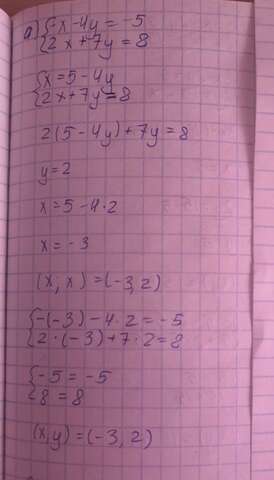 a) {-x-4y=-5
{2x+7y=8
{x=5-4y
{2x+7y=8
2(5-4y)+7y=8
y=2
x=5-4·2
x=-3
(x,x)=(-3,2)
{-(-3)-4·2=-5
{2·(-3)+7·2=8
{-5=-5
{8=8
(x,y)=(-3,2)